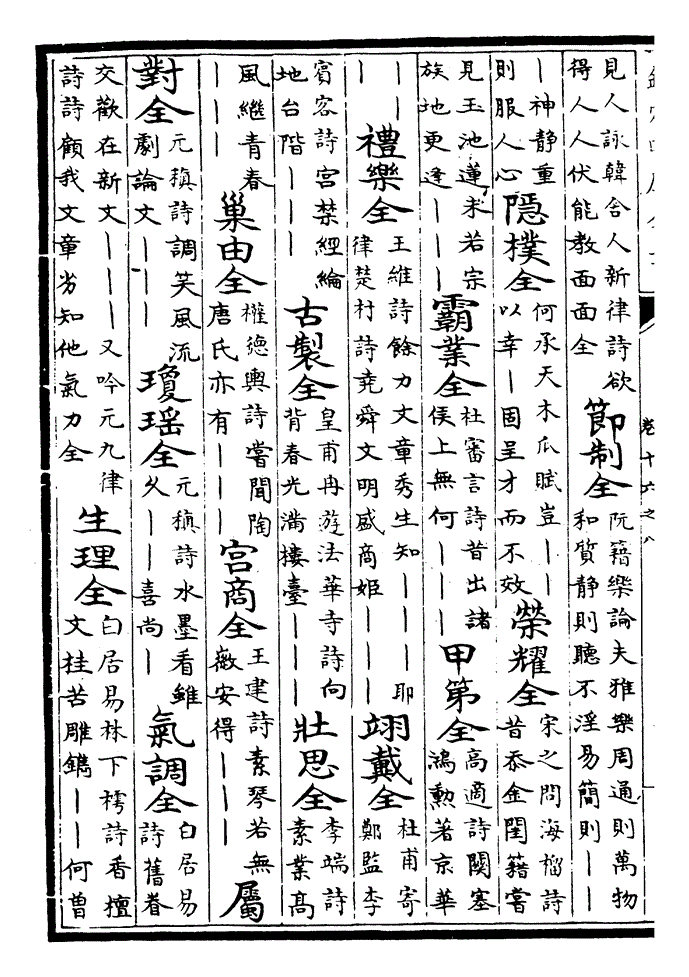 卷十六之八
見人詠韓舍人新律詩欲得人人伏能教面面全節制全阮籍樂論夫雅樂周通則萬物和質静則聽不淫易簡則丨丨
丨神静重則服人心隱樸全何承天木瓜賦豈丨丨以幸丨固呈才而不效榮耀全宋之問海榴詩昔忝金閨籍嘗
見玉池蓮未若宗族地更逢丨丨丨霸業全杜審言詩昔出諸侯上無何丨丨丨甲第全高適詩關塞鴻勳著京華
丨丨丨禮樂全王維詩餘力文章秀生知丨丨丨耶律楚村詩堯舜文明盛商姬丨丨丨翊戴全杜甫寄鄭監李
賓客詩宫禁經綸地台階丨丨丨古製全皇甫冉遊法華寺詩向背春光滿樓臺丨丨丨壯思全李端詩素業髙
風繼青春丨丨丨巢由全權德輿詩嘗聞陶唐氏亦有丨丨丨宫商全王建詩素琴若無徽安得丨丨丨屬
對全元稹詩調笑風流劇論文丨丨丨瓊瑶全元稹詩水墨看雖久丨丨喜尚丨氣調全白居易詩舊眷
交歡在新文丨丨丨又吟元九律詩詩顧我文章劣知他氣力全生理全白居易林下樗詩香檀文桂苦雕鐫丨丨何曽